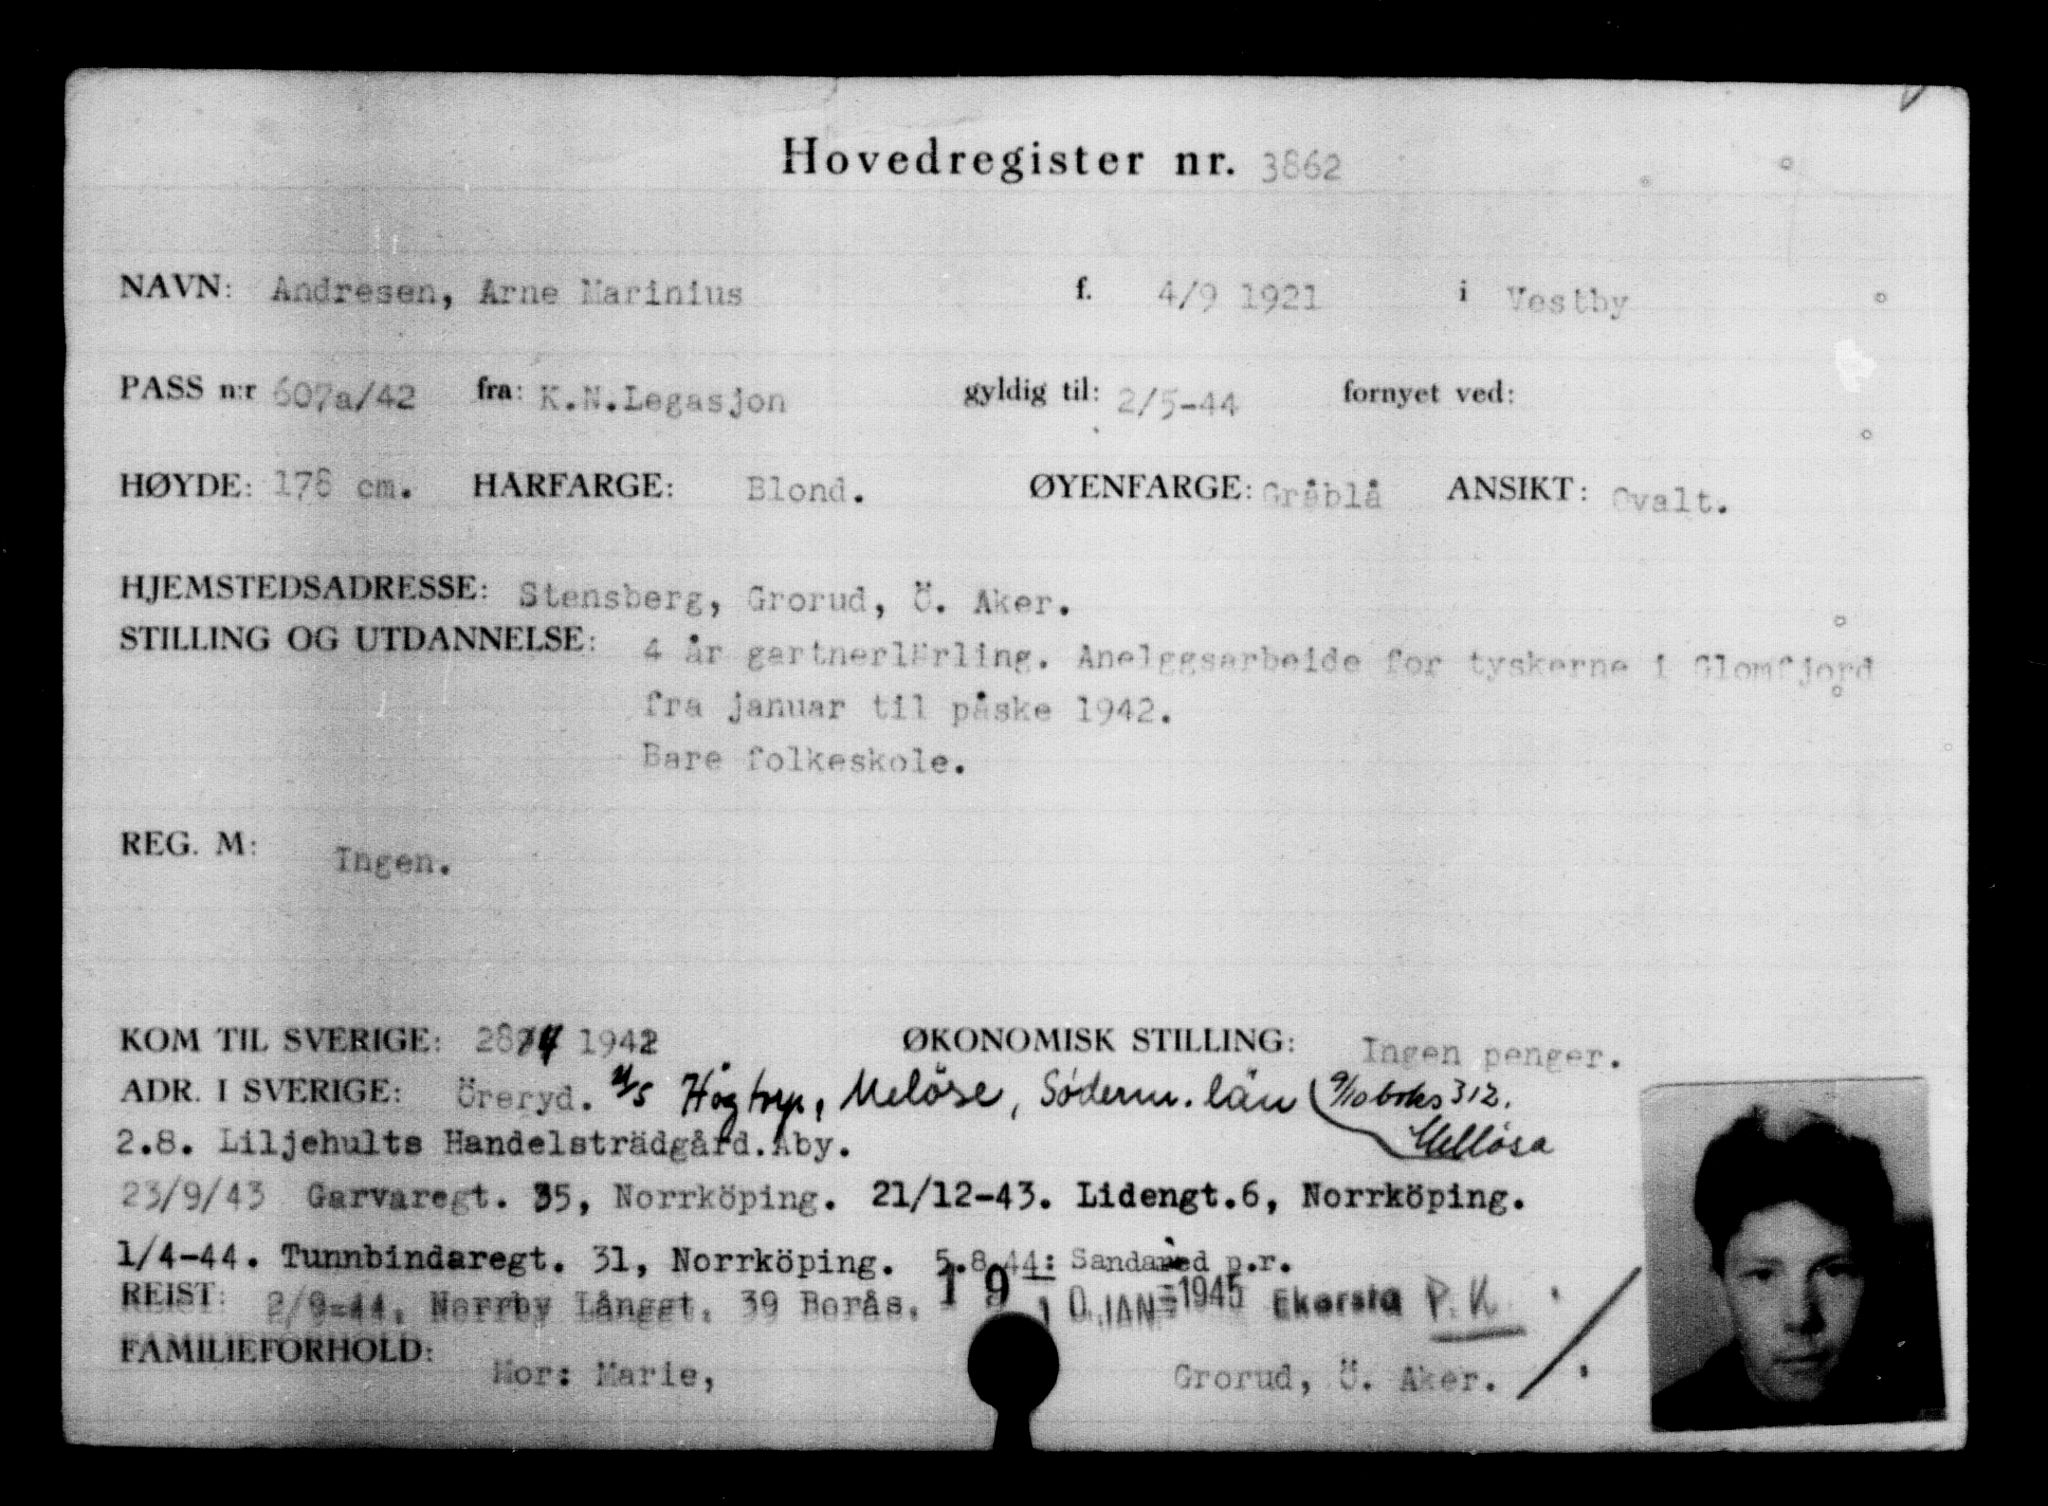 Hovedregister nr. 3862
NAVN: Andresen, Arne Marinius f. 4/9 1921 i Vestby
PASS n:r 607a/42 fra: K.N.Legasjon gyldig til: 2/5-44 fornyet ved:
HØYDE: 178 cm. HÅRFARGE: Blond. ØYENFARGE: Gråblå ANSIKT: Ovalt.
HJEMSTEDSADRESSE: Stensberg, Grorud, Ö. Aker.
STILLING OG UTDANNELSE: 4 år gartnerlärling. Anelggsarbeide for tyskerne i Glomfjord
fra januar til påske 1942.
Bare folkeskole.
REG. M: Ingen.
KOM TIL SVERIGE: 28/4 1942 ØKONOMISK STILLING: Ingen penger.
ADR. I SVERIGE: Öreryd. Högtorp, Melöse, Söderm. län 9/10 boks 312.
Mellösa
2.8. Liljehults Handelsträdgård. Åby.
23/9/43 Garvaregt. 35, Norrköping. 21/12-43. Lidengt.6, Norrköping.
1/4-44. Tunnbindaregt. 31, Norrköping. 5.8.44: Sandared p.r.
REIST: 2/9-44. Norrby Långgt. 39 Borås. 19 10 JAN 1945 Ekorsta P.K
FAMILIEFORHOLD: Mor: Marie, Grorud, Ö. Aker.